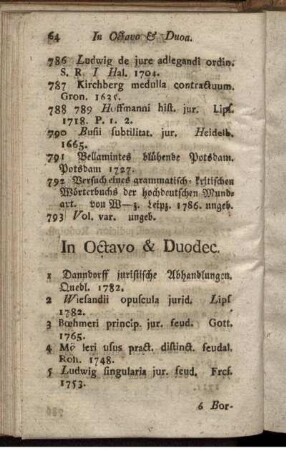 64 In Octavo & Duon.
786 Ludwig de jure adlegandi ordin.
S. R. I Hal. 1704.
787 Kirchberg medulla contractuum.
Gron. 1625.
788 789 Hoffmanni hist. jur. Lips.
1718. P. 1. 2.
790 Busii subtilitat. jur. Heidelb.
1665.
791 Bellamintes blühende Potsdam.
Potsdam 1727.
792 Versuch eines grammatisch-kritischen
Wörterbuchs der hochdeutschen Mund-
art. von W—z. Leipz. 1786. ungeb.
793 Vol. var. ungeb.
In Octavo & Duodec.
1 Danndorff juristische Abhandlungen.
Quedl. 1782.
2 Wiesandii opuscula jurid. Lips
1782.
3 Bœhmeri princip. jur. feud. Gott.
1765.
4 leri usus pract. distinct. feudal.
1748.
5 Ludwig singularia jur. feud. Frcf.
1753.
6 Bor-